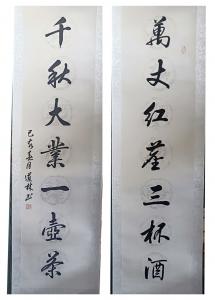 萬丈红塵三杯酒
千秋大業一壺茶
己亥月道林书